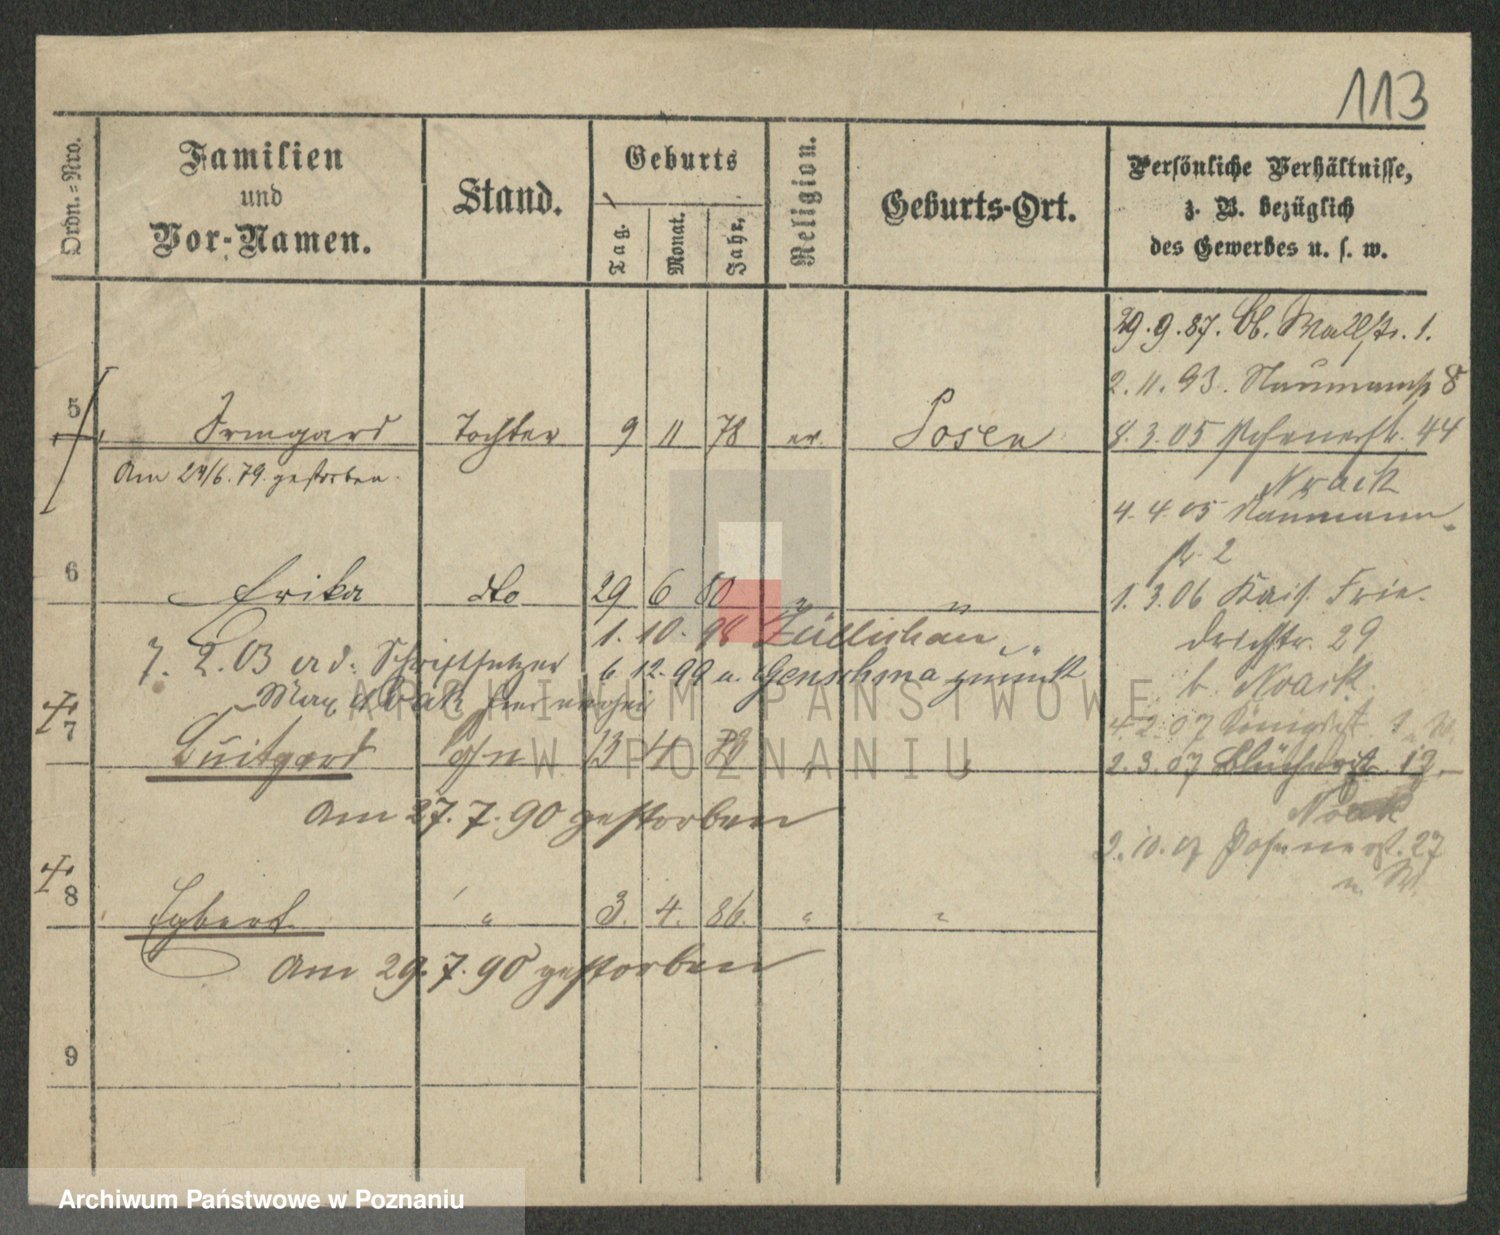 113
Ordn.-Nro.
Familien
und
Vor-Namen.
Stand.
Geburts
Tag.
Monat.
Jahr,
Religion.
Geburts-Ort.
Persönliche Verhältnisse,
z. B. bezüglich
des Gewerbes u. s. w.
29.9.87. Wallstr. 1.
2.11.93. Naumannstr 8
5 Irmgard Tochter 9 11 78 ev. Posen
8.3.05 44
Am 24/6.79. gestorben.
Noack
4.4.05 Naumann-
str. 2
6 Erika dto 29 6 80 " "
1.3.06 Kais. Frie-
drichstr. 29
1.10.98 Züllichau
7.2.03 Schriftsetzer
6.12.99 zurück
b. Noack
Max
4.2.07 Königstr.
7 Luitgard 13 4
2.3.07 Blücherstr. 12
am 27.7.90 gestorben
Noack
2.10.07 27
8 Egbert " 3. 4. 86. " "
am 29.7.90 gestorben
9
ARCHIWUM PAŃSTWOWE
W POZNANIU
Archiwum Państwowe w Poznaniu